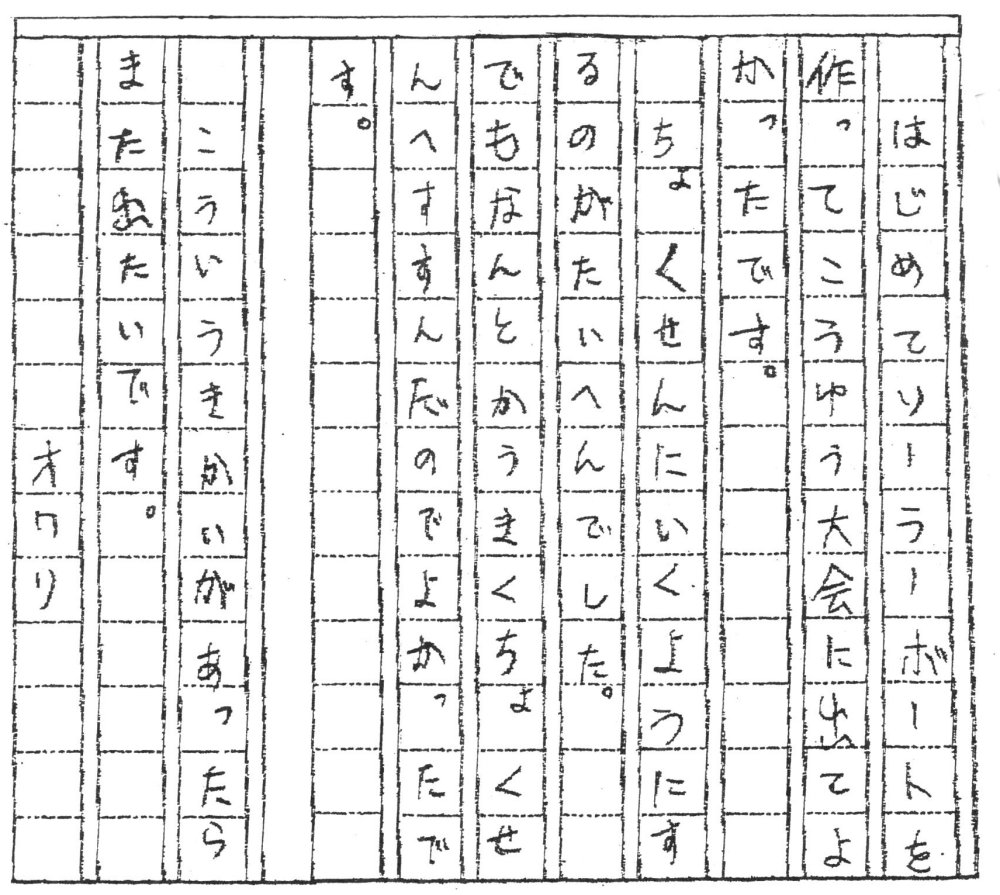 はじめてソーラーボートを
作ってこうゆう大会に出てよ
かったです。
ちょくせんにいくようにす
るのがたいへんでした。
でもなんとかうまくちょくせ
んへすすんだのでよかったで
す。
こういううきかいがあったら
また出たいです。
オワリ